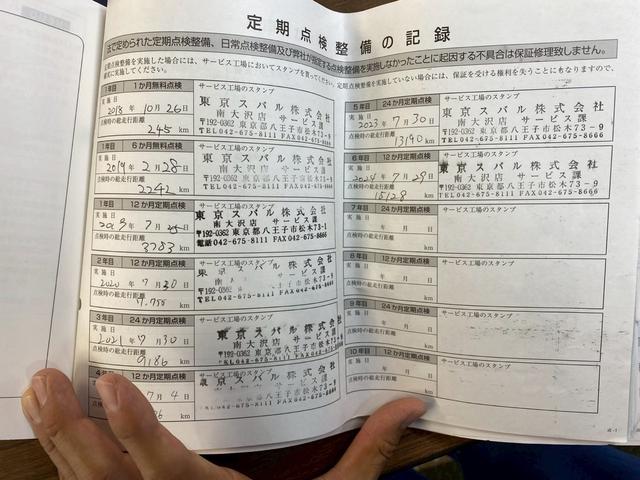 定期点検整備の記録
法で定められた定期点検整備、日常点検整備及び弊社が指定する点検整備を実施しなかったことに起因する不具合は保証修理致しません。
定期点検整備を実施した場合には、サービス工場においてスタンプを貰ってください。定期点検整備を実施していない場合には、保証を受ける権利を失うことにもなりますので、
確実に実施してください。
1年目 1か月無料点検
サービス工場のスタンプ
実施日
2018年10月26日
点検時の総走行距離
245 km
東京スバル株式会社
南大沢店 サービス課
〒192-0362 東京都八王子市松木73-9
TEL042-675-8111 FAX042-675-8666
1年目 6か月無料点検
サービス工場のスタンプ
実施日
2019年2月28日
点検時の総走行距離
2242 km
東京スバル株式会社
南大沢店 サービス課
〒192-0362 東京都八王子市松木73-9
TEL042-675-8111 FAX042-675-8666
1年目 12か月定期点検
サービス工場のスタンプ
実施日
2019年7月
点検時の総走行距離
3783 km
東京スバル株式会社
南大沢店 サービス課
〒192-0362 東京都八王子市松木73-1
電話042-675-8111 FAX042-675-8666
2年目 12か月定期点検
サービス工場のスタンプ
実施日
2020年7月30日
点検時の総走行距離
km
東京スバル株式会
南 サービス課
〒192-0362
TEL042-675-8111 FAX042-675-8666
3年目 24か月定期点検
サービス工場のスタンプ
実施日
2021年7月30日
点検時の総走行距離
9186 km
東京スバル株式会社
南大沢店 サービス課
〒192-0362 東京都八王子市松木73-9
TEL042-675-8111 FAX042-675-8666
4年目 12か月定期点検
サービス工場のスタンプ
7月4日
km
東京スバル株式会社
南大沢店 サービス課
〒192-0362 東京都八王子市松木73-9
TEL042-675-8111 FAX042-675-8666
5年目 24か月定期点検
サービス工場のスタンプ
実施日
2023年7月30日
点検時の総走行距離
13190 km
東京スバル株式会社
南大沢店 サービス課
〒192-0362 東京都八王子市松木73-9
TEL042-675-8111 FAX042-675-8666
6年目 12か月定期点検
サービス工場のスタンプ
実施日
2024年7月29日
点検時の総走行距離
15128 km
東京スバル株式会社
南大沢店 サービス課
〒192-0362 東京都八王子市松木73-9
TEL042-675-8111 FAX042-675-8666
7年目 24か月定期点検
サービス工場のスタンプ
実施日
年 月 日
点検時の総走行距離
km
8年目 12か月定期点検
サービス工場のスタンプ
実施日
年 月 日
点検時の総走行距離
km
9年目 24か月定期点検
サービス工場のスタンプ
実施日
年 月 日
点検時の総走行距離
km
10年目 12か月定期点検
サービス工場のスタンプ
実施日
年 月 日
点検時の総走行距離
km